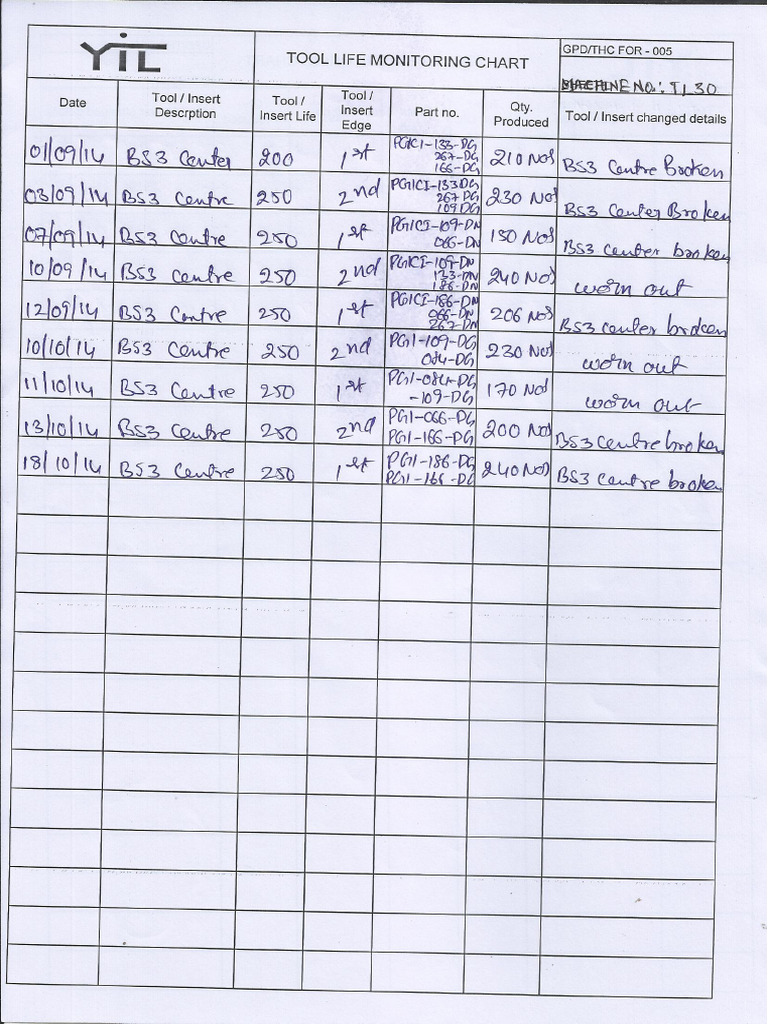 YIL
TOOL LIFE MONITORING CHART
GPD/THC FOR - 005
MACHINE NO.: T1 30
Date Tool / Insert Descrption Tool / Insert Life Tool / Insert Edge Part no. Qty. Produced Tool / Insert changed details
01/09/14 BS3 Center 200 1st PG1C1-133-DG 210 Nos BS3 Centre Broken
267-DG
166-DG
03/09/14 BS3 Centre 250 2nd PG1C1-133DG 230 Nos BS3 Center Broken
267 DG
109 DG
07/09/14 BS3 Centre 250 1st PG1C1-109-DN 150 Nos BS3 center broken
066-DN
10/09/14 BS3 Centre 250 2nd PG1C1-109-DN 240 Nos worn out
133-DN
186-DN
12/09/14 BS3 Centre 250 1st PG1C1-186-DN 206 Nos BS3 center broken
066-DN
267-DN
10/10/14 BS3 Centre 250 2nd PG1-109-DG 230 Nos worn out
084-DG
11/10/14 BS3 Centre 250 1st PG1-084-DG 170 Nos worn out
-109-DG
13/10/14 BS3 Centre 250 2nd PG1-066-DG 200 Nos BS3 centre broken
PG1-166-DG
18/10/14 BS3 Centre 250 1st PG1-186-DG 240 Nos BS3 centre broken
PG1-166-DG